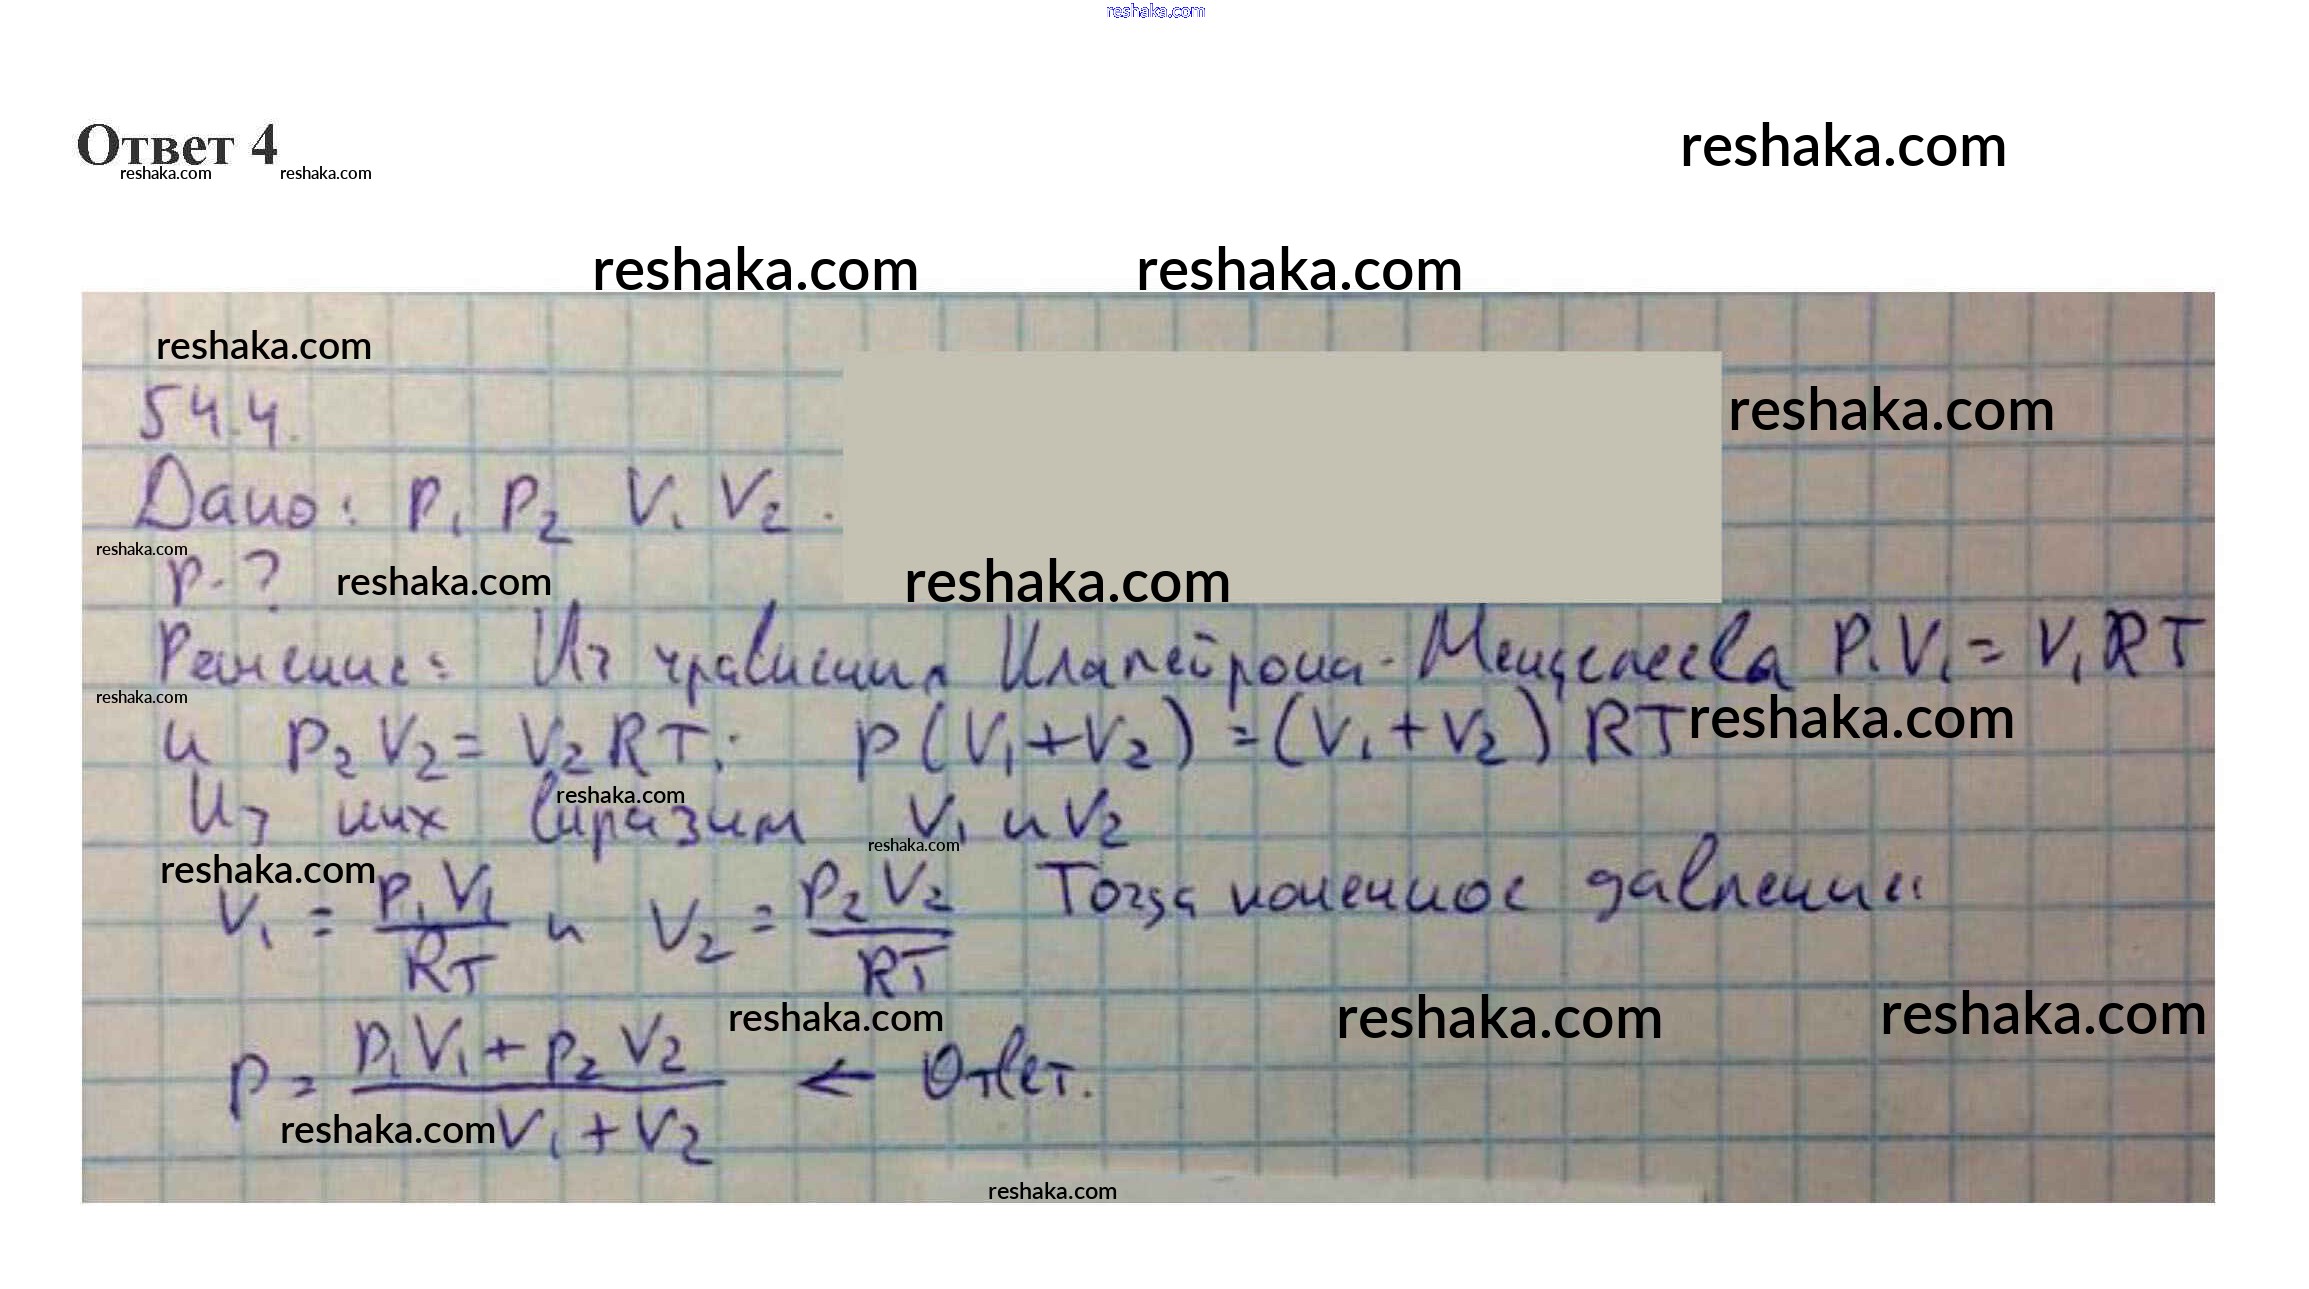 reshaka.com
Ответ 4
reshaka.com
reshaka.com reshaka.com
reshaka.com reshaka.com
reshaka.com
54.4.
reshaka.com
Дано: p₁ p₂ V₁ V₂.
reshaka.com
p-?
reshaka.com reshaka.com
Решение: Из уравнения Клапейрона-Менделеева P₁V₁ = V₁RT
reshaka.com
и p₂V₂ = V₂RT; p(V₁+V₂) = (V₁+V₂)RT
reshaka.com
Из них выразим V₁ и V₂
reshaka.com
reshaka.com
reshaka.com
V₁ = p₁V₁/RT и V₂ = p₂V₂/RT Тогда конечное давление:
reshaka.com reshaka.com reshaka.com
p = p₁V₁+p₂V₂/V₁+V₂ ← Ответ.
reshaka.com
reshaka.com